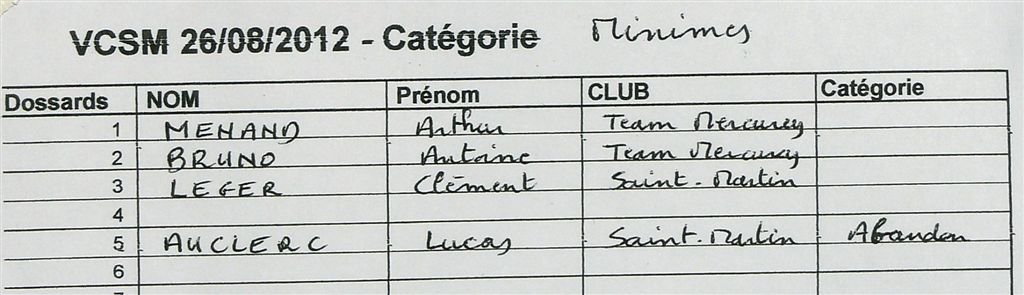 VCSM 26/08/2012 - Catégorie Minimes
Dossards NOM Prénom CLUB Catégorie
1 MENAND Arthur Team Mercurey
2 BRUNO Antoine Team Mercurey
3 LEGER Clément Saint-Martin
4
5 AUCLERC Lucas Saint-Martin Abandon
6